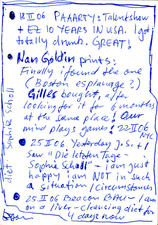 18 II 06 PAAARTY: Talentshow
+ EZ 10 YEARS IN USA. I got
totally drunk. GREAT!
Nan Goldin prints:
Finally i found the one
(Boston espionage?)
Gilles bought, i'm
looking for it for 6 months
at the same place! Our
mind plays games! 22 II 06
NYC
25 II 06 Yesterday J. S. + I
saw "Die letzten Tage -
Sophie Scholl" - i am just
happy i am NOT in such
a situation / circumstance
25 II 06 Beacon Better - i am
on a liver cleansing diet for
4 days now
diet sophie scholl